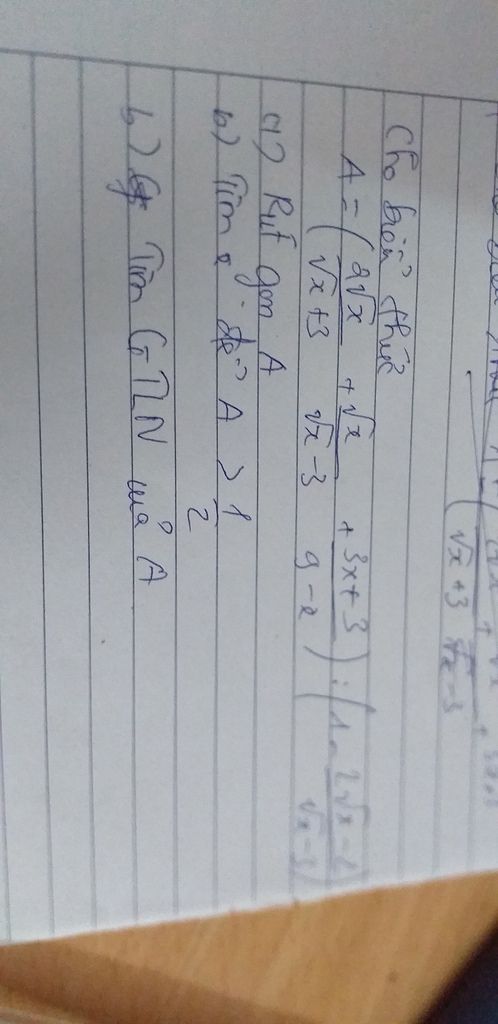 (√x+3 √x-3
Cho biểu thức
A = (2√x/√x+3 + √x/√x-3 + 3x+3/9-x) : (1 - 2√x-2/√x-3)
a) Rút gọn A
b) Tìm x để A > 1/2
b) Tìm GTLN của A